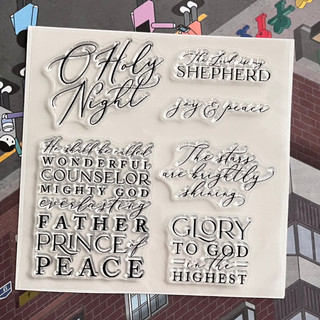 O Holy
Night
The Lord is my
SHEPHERD
joy & peace
He shall be called
WONDERFUL
COUNSELOR
MIGHTY GOD
everlasting
FATHER
PRINCE of
PEACE
The stars
are brightly
shining
GLORY
TO GOD
in the
HIGHEST